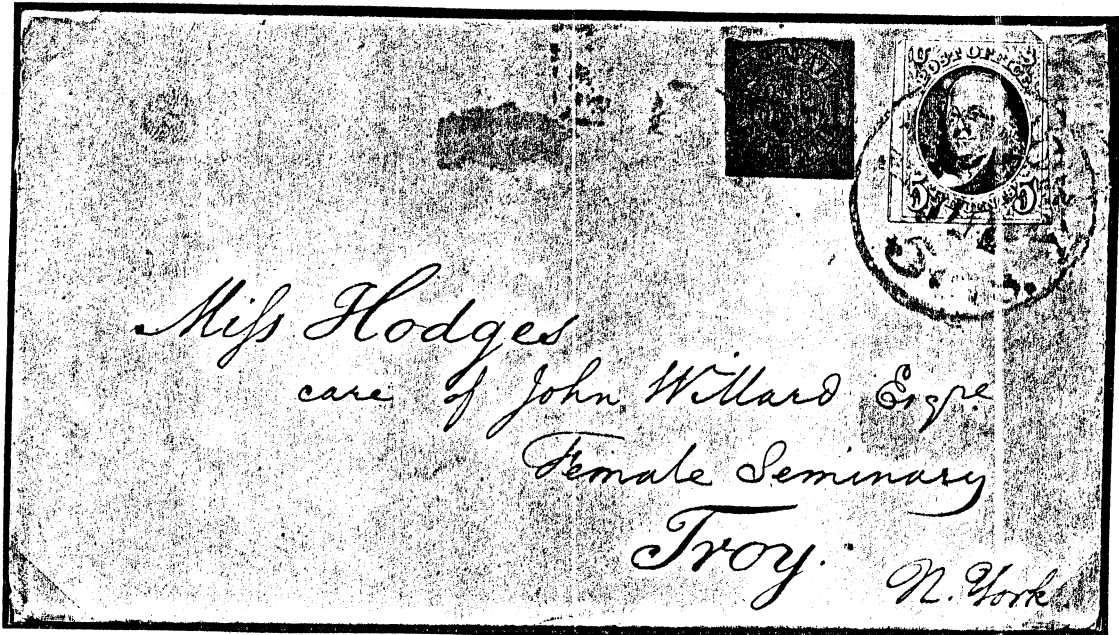 U S
POST OFFICE
5 5
Miſs Hodges
care of John Willard Esqre
Female Seminary
Troy.
N. York